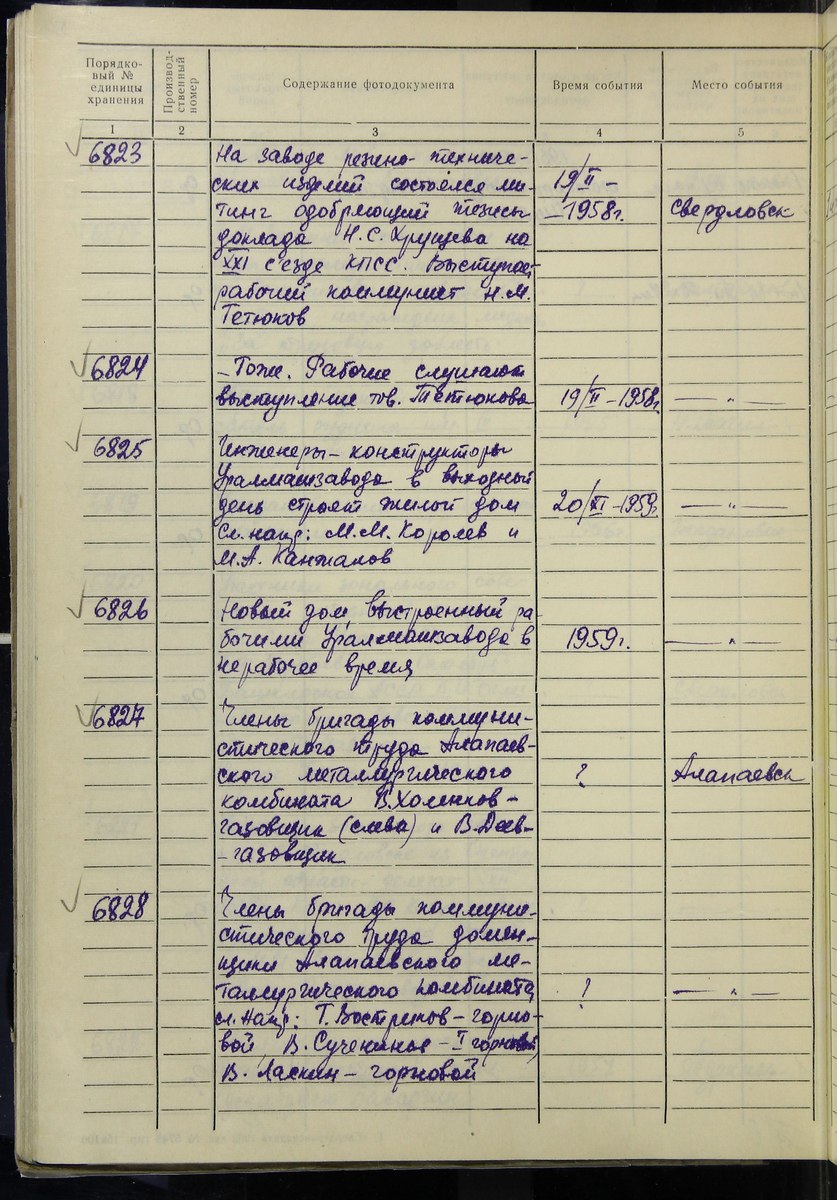 Порядко-
вый №
единицы
хранения
Производ-
ственный
номер
Содержание фотодокумента
Время события
Место события
1
2
3
4
5
6823
На заводе резино-техниче-
ских изделий состоялся ми-
тинг одобряющий тезисы
доклада Н.С. Хрущева на
XXI с'езде КПСС. Выступает
рабочий коммунист Н.М.
Тетюков
19/II -
-1958г.
Свердловск
6824
- Тоже. Рабочие слушают
выступление тов. Тетюкова
19/II - 1958г.
— " —
6825
Инженеры - конструкторы
Уралмашзавода в выходный
день строят жилый дом
Сл. напр: М.М. Королев и
М.А.
20/XI -1959г.
— " —
6826
Новый дом, выстроенный ра-
бочими Уралмашзавода в
нерабочее время
1959г.
— " —
6827
Члены бригады коммуни-
стического труда Алапаев-
ского металлургического
комбината В.Хоменков -
газовщик (слева) и В.Деев-
- газовщик
?
Алапаевск
6828
Члены бригады коммуни-
стического труда домен-
щики Алапаевского ме-
таллургического комбината
сл. напр: Т. Востряков - горно-
вой В. - I горновой,
В. Ласкин - горновой
?
— " —